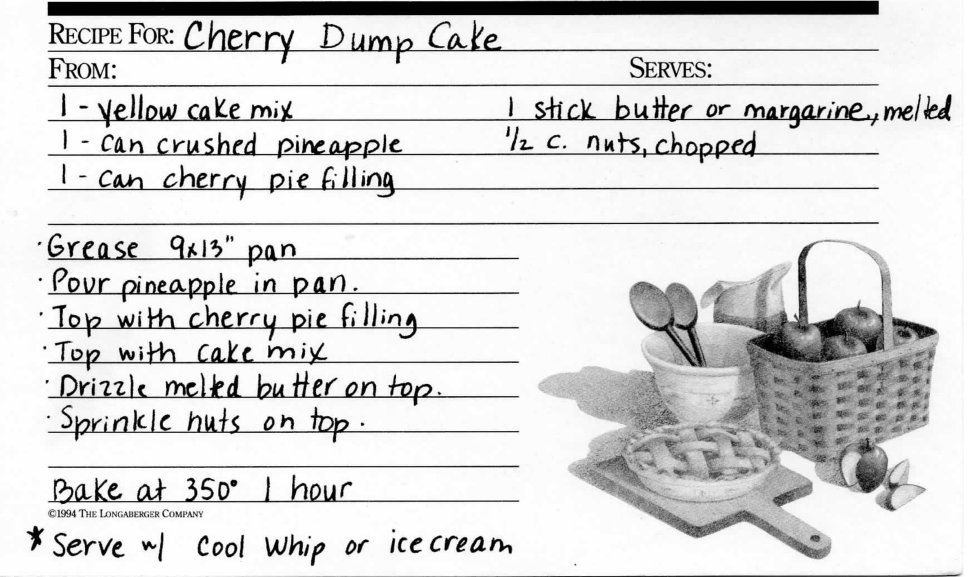 RECIPE FOR: Cherry Dump Cake
FROM: SERVES:
1 - yellow cake mix
1 - can crushed pineapple
1 - can cherry pie filling
1 stick butter or margarine, melted
1/2 c. nuts, chopped
· Grease 9x13" pan
· Pour pineapple in pan.
· Top with cherry pie filling
· Top with cake mix
· Drizzle melted butter on top.
· Sprinkle nuts on top.
Bake at 350° 1 hour
©1994 THE LONGABERGER COMPANY
* Serve w/ Cool Whip or ice cream